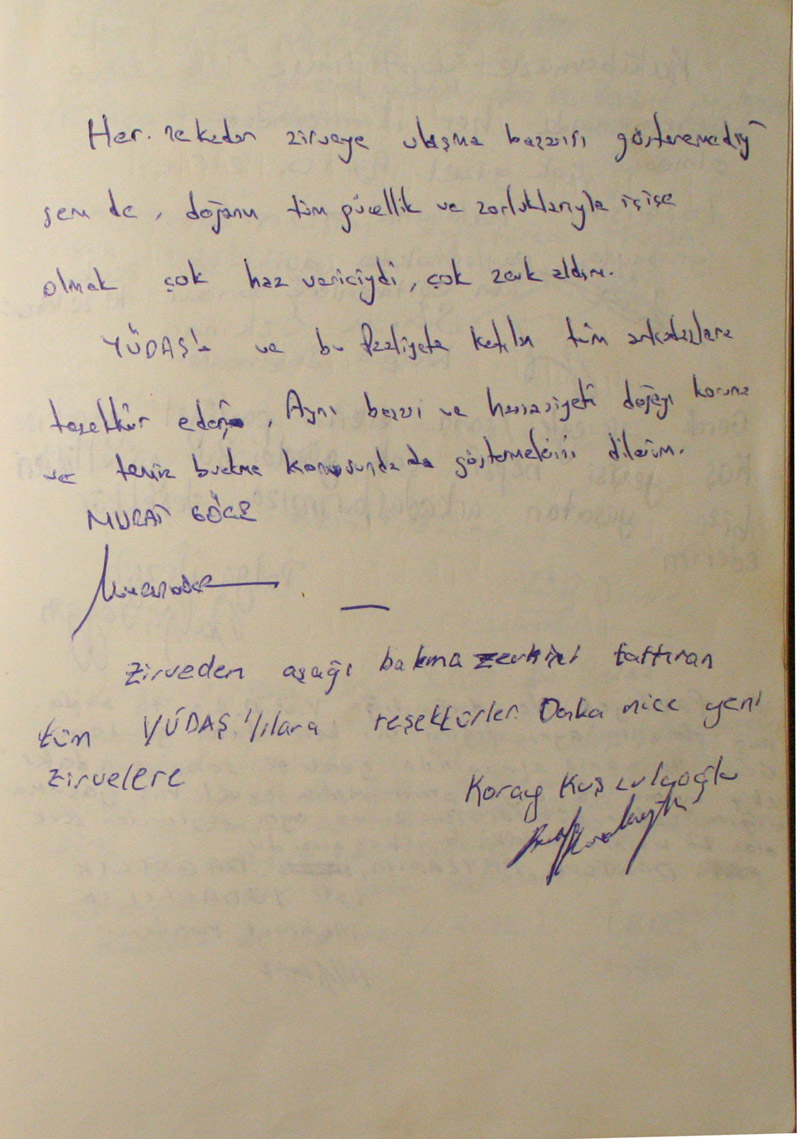 Her. nekadar zirveye ulaşma başarısı gösteremediy
sem de, doğanın tüm güzellik ve zorluklarıyla içiçe
olmak çok haz vericiydi, çok zevk aldım.
YÜDAŞ'a ve bu faaliyete katılan tüm arkadaşlara
teşekkür ederim, Aynı başarı ve hassasiyeti doğayı koruma
ve temiz bırakma konusunda da göstermelerini dilerim.
MURAT
Zirveden aşağı bakma zevkini tattıran
tüm YÜDAŞ'lılara teşekkürler. Daha nice yeni
zirvelere
Koray